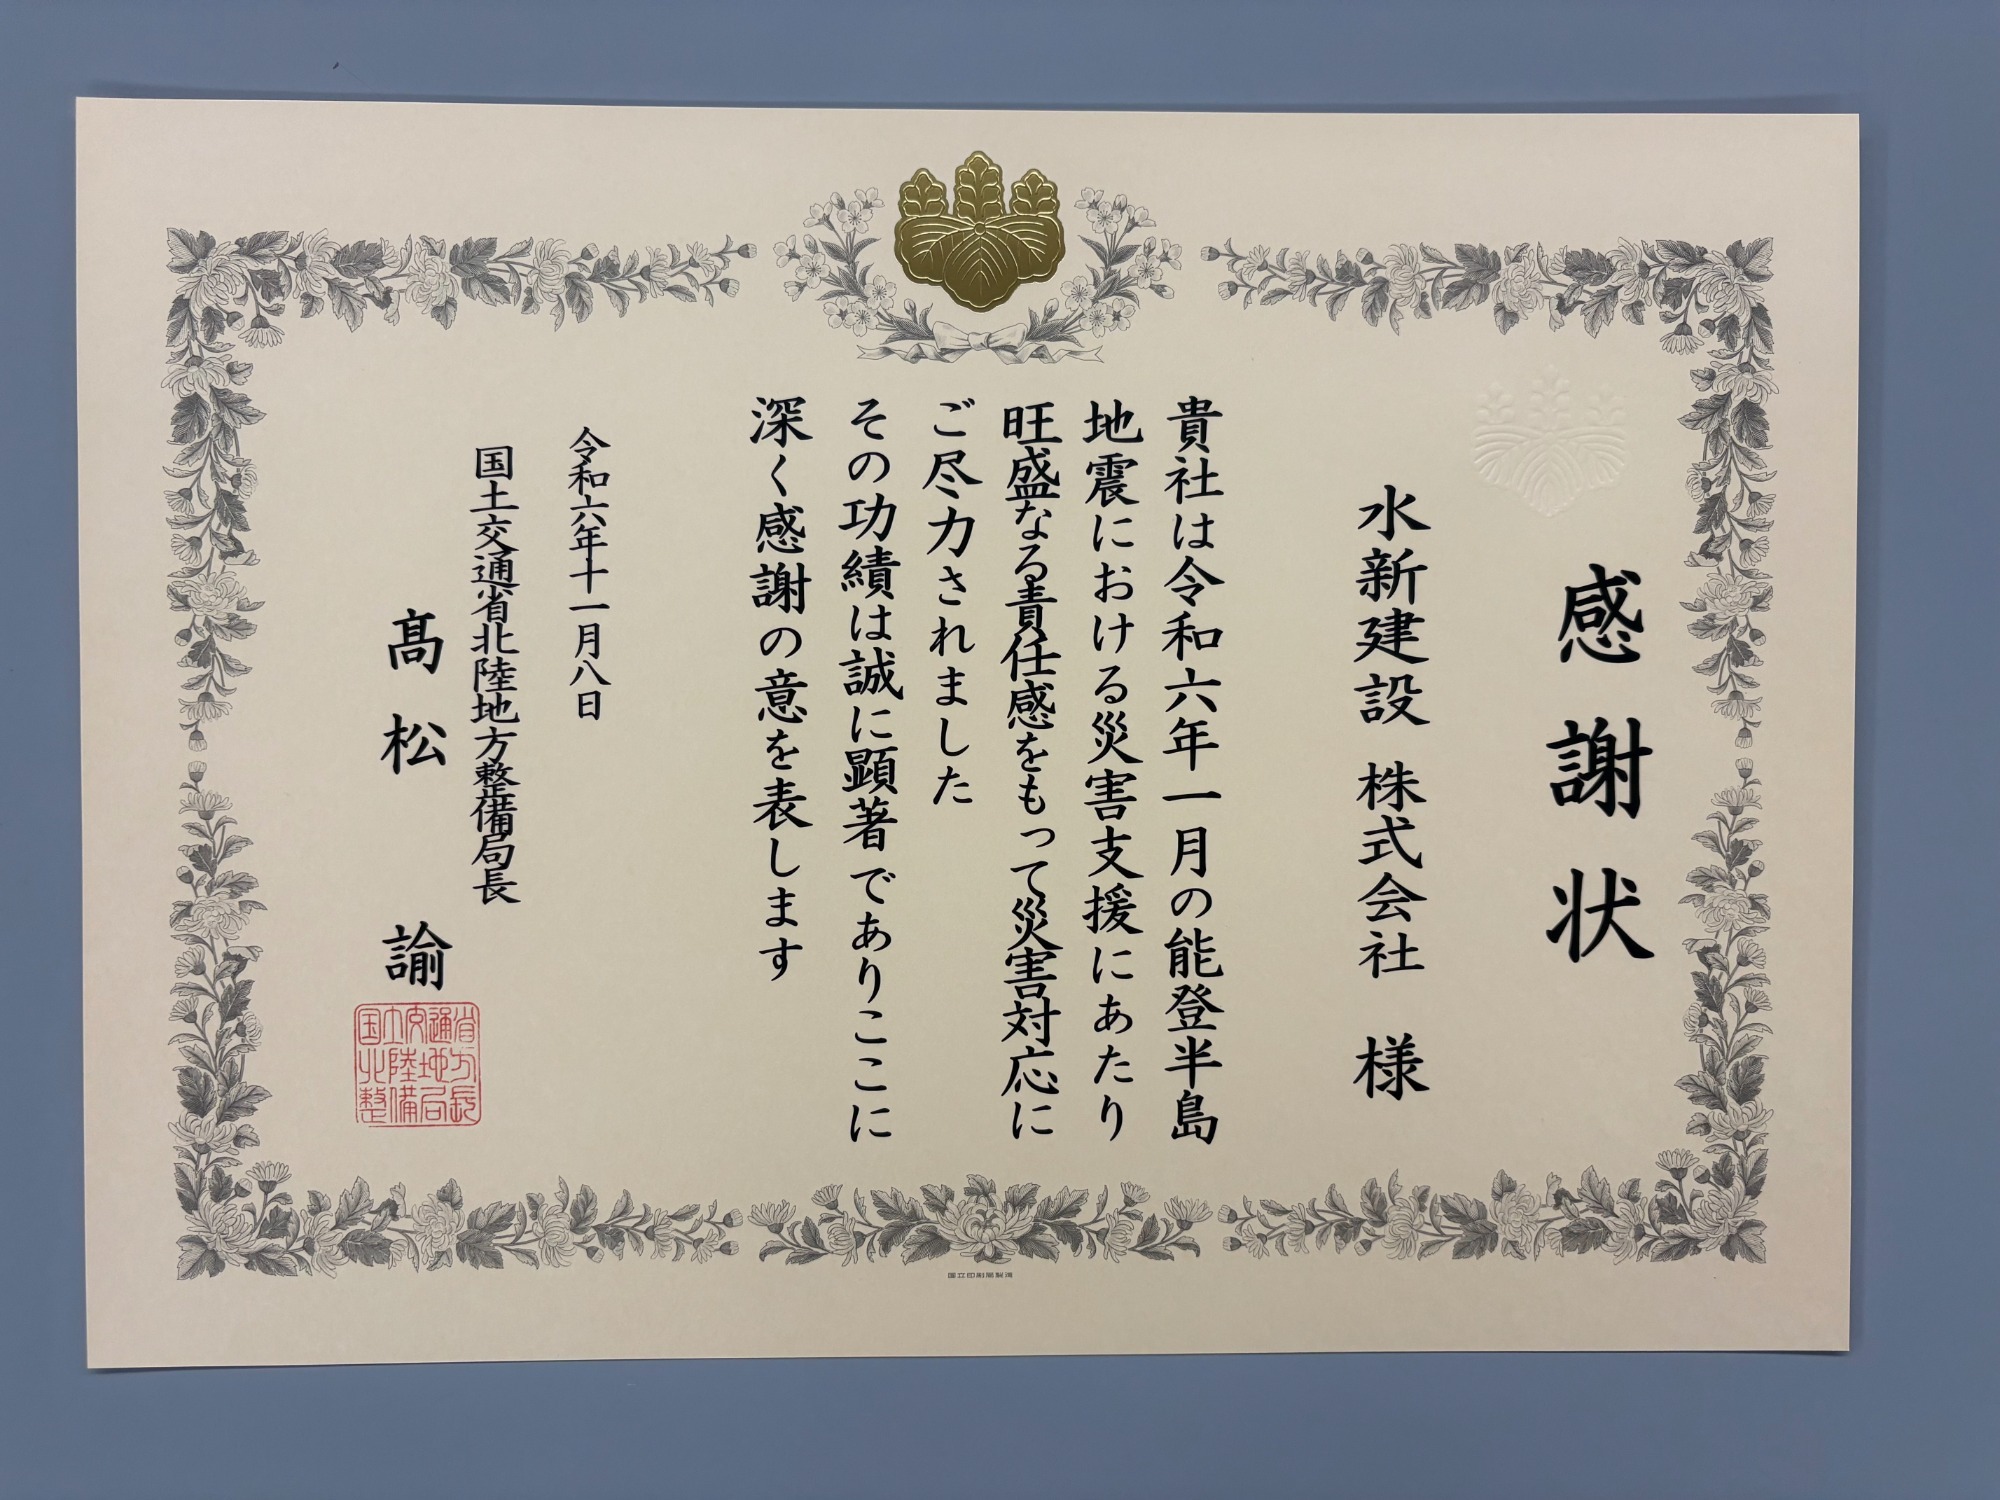 感謝状
水新建設 株式会社 様
貴社は令和六年一月の能登半島
地震における災害支援にあたり
旺盛なる責任感をもって災害対応に
ご尽力されました
その功績は誠に顕著でありここに
深く感謝の意を表します
令和六年十一月八日
国土交通省北陸地方整備局長
髙松 諭
国土交通省
北陸地方
整備局長
国立印刷局製造